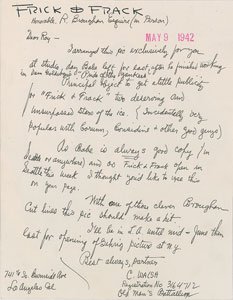 FRICK & FRACK
Honorable R. Brougham Esquire (in Person)
MAY 9 1942
Dear Roy -
I arranged this pic exclusively for you
at studio, day Babe left for east, after to finished working
in Sam Goldwyn's "Pride of the Yankees"
Principal object to get a little publicity
for "Frick & Frack" two deserving and
unsurpassed Stars of the ice. (Incidentally very
popular with Corum, Considine & other good guys)
As Babe is always good copy (in
Seattle or anywhere) and as Frick & Frack open in
Seattle this week I thought you'd like to use this
on your page.
With one of those clever Brougham
Cut lines the pic should make a hit
I'll be in L.A. until mid-June then
east for opening of Gehrig picture at N.Y.
Best always, partner
C. WALSH
741 So Burnside Ave
Los Angeles Cal
Registration No 364712
Old Man's Battalion